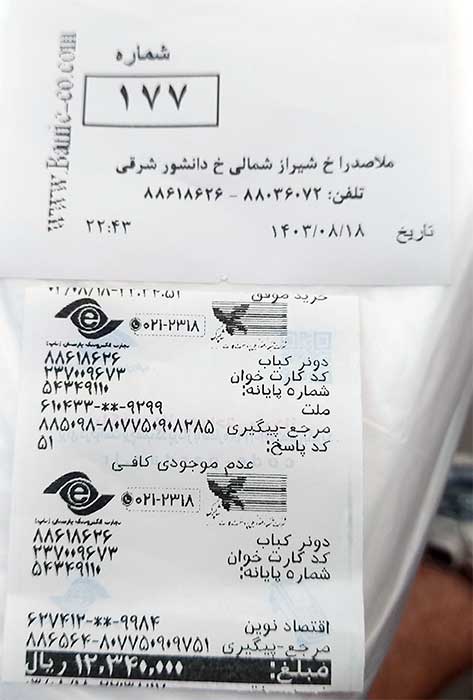 شماره
۱۷۷
www.Banic-co.com
ملاصدرا خ شیراز شمالی خ دانشور شرقی
تلفن: ۸۸۰۳۶۰۷۲ - ۸۸۶۱۸۶۲۶
تاریخ ۱۴۰۳/۰۸/۱۸ ۲۲:۴۳
خرید موفق
۰۲۱-۲۳۱۸
تجارت الکترونیک پارسیان
دونر کباب ۸۸۶۱۸۶۲۶
کد کارت خوان ۲۳۷۰۰۹۶۷۳
شماره پایانه: ۵۴۳۴۹۱۱۰
ملت ۶۱۰۴۳۳-**-۹۲۹۹
مرجع-پیگیری ۸۸۵۰۹۸-۸۰۷۷۵۰۹۰۸۲۸۵
کد پاسخ: ۵۱
عدم موجودی کافی
۰۲۱-۲۳۱۸
تجارت الکترونیک پارسیان
دونر کباب ۸۸۶۱۸۶۲۶
کد کارت خوان ۲۳۷۰۰۹۶۷۳
شماره پایانه: ۵۴۳۴۹۱۱۰
اقتصاد نوین ۶۲۷۴۱۲-**-۹۹۸۴
مرجع-پیگیری ۸۸۶۵۶۴-۸۰۷۷۵۰۹۰۹۷۵۱
مبلغ: ۱۲,۳۴۰,۰۰۰ ریال